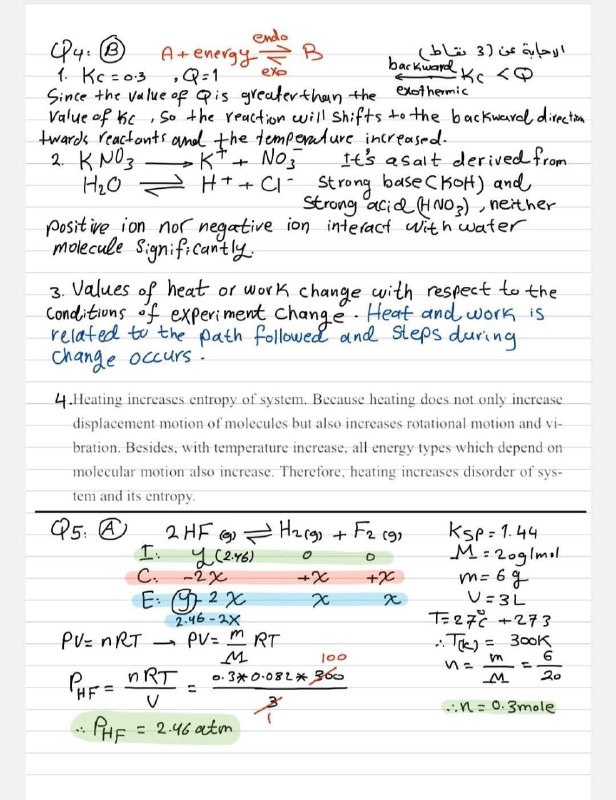 Q4: B A + energy endo ⇌ exo B الإجابة عن (3 نقاط)
1. Kc = 0.3 , Q = 1 backward ← exothermic Kc < Q
Since the value of Q is greater than the
value of Kc, so the reaction will shifts to the backward direction
twards reactants and the temperature increased.
2. KNO3 → K+ + NO3- It's a salt derived from
H2O ⇌ H+ + Cl- Strong base (KOH) and
Strong acid (HNO3), neither
positive ion nor negative ion interact with water
molecule significantly.
3. Values of heat or work change with respect to the
conditions of experiment change. Heat and work is
related to the path followed and steps during
change occurs.
4. Heating increases entropy of system. Because heating does not only increase
displacement motion of molecules but also increases rotational motion and vi-
bration. Besides, with temperature increase, all energy types which depend on
molecular motion also increase. Therefore, heating increases disorder of sys-
tem and its entropy.
Q5: A 2HF (g) ⇌ H2(g) + F2 (g) Ksp = 1.44
I: y (2.46) 0 0 M = 20g/mol
C: -2x +x +x m = 6 g
E: y - 2x x x V = 3L
2.46 - 2x T = 27°C + 273
PV = nRT → PV = m/M RT ∴ T(k) = 300K
PHF = nRT/V = 0.3*0.082*300/3 100 1 n = m/M = 6/20
∴ PHF = 2.46 atm ∴ n = 0.3mole